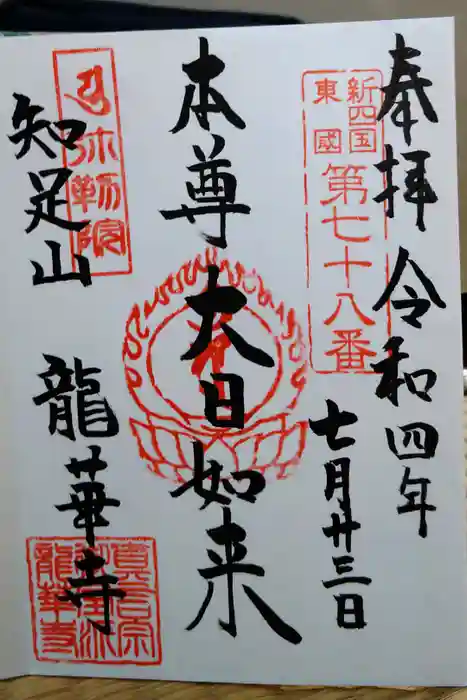 奉拝 令和四年
七月廿三日
新四国
東國
第七十八番
本尊 大日如来
弥勒院
知足山 龍華寺
真言宗
龍華寺